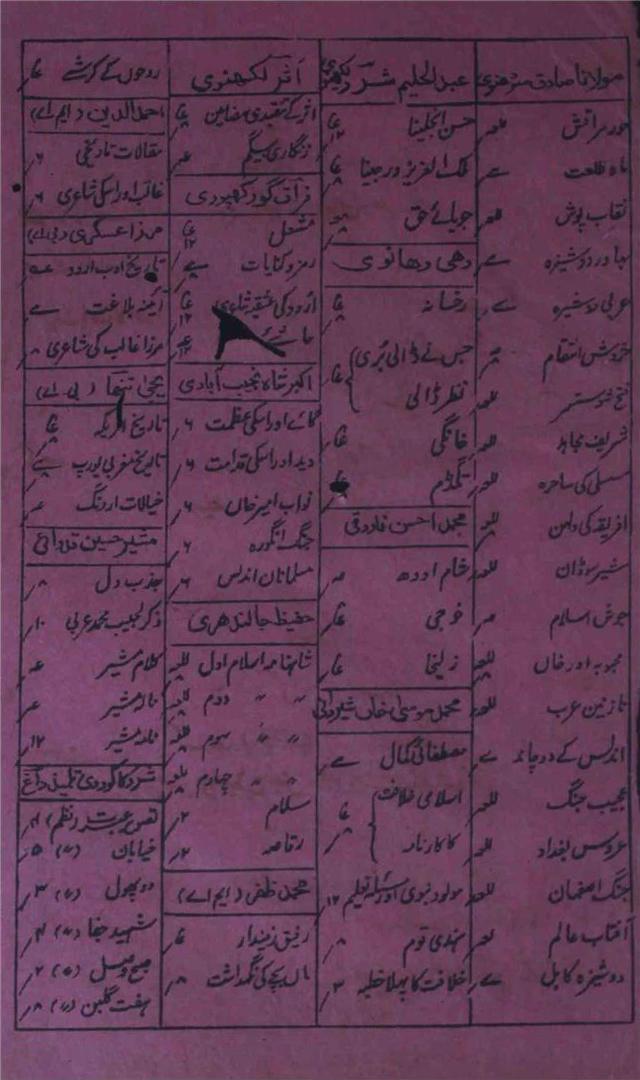 مولانا صادق سردھنوی
حور مراقش
ماہ طلعت
نقاب پوش
بہادر دوشیزہ
عربی دوشیزہ
جوش انتقام
فتح
شریف مجاہد
سسلی کی ساحرہ
افریقہ کی دلہن
شیر سوڈان
جوش اسلام
محبوبہ اور خاں
نازنین عرب
اندلس کے دو چاند
عجیب جنگ
عروس بغداد
جنگ اصفہان
آفتاب عالم
دوشیزہ کابل
عبدالحلیم شرر لکھنوی
حسن انجلینا
ملک العزیز ورجینا
جویائے حق
وھی وھانوی
رخسانہ
جس نے ڈالی بُری
نظر ڈالی
خانگی
تگڈم
محمد احسن فاروقی
شام اودھ
فوجی
زلیخا
محمد موسیٰ خاں شیروانی
مصطفائی کمال
اسلامی خلافت
کا کارنامہ
مولود نبوی اور مسئلہ تعلیم ۱۲
ہندی قوم ۸
خلافت کا پہلا خطبہ ۳
اثر لکھنوی
اثر کے تنقیدی مضامین
زنگاری بیگم
فراق گورکھپوری
مشعل
رمز و کنایات
اردو کی عشقیہ شاعری
حاشیے
اکبر شاہ نجیب آبادی
گائے اور اسکی عظمت ۶
وید اور اسکی قدامت ۶
نواب امیر خاں ۶
جنگ انگورہ ۶
مسلمانان اندلس ۶
حفیظ جالندھری
شاہنامہ اسلام اول
〃 〃 دوم
〃 〃 سوم
〃 〃 چہارم
سلام ۲
رقاصہ ۲
محمد ظفی (ایم اے)
رفیق زمیندار
ماں بچے کی نگہداشت ۸
روحوں کے کرشمے
احمد الدین (ایم اے)
مقالات تاریخی ۶
غالب اور اسکی شاعری ۶
مرزا عسکری (بی اے)
تاریخ ادب اردو
آئینہ بلاغت
مرزا غالب کی شاعری ۸
یحییٰ تنہا (بی اے)
تاریخ امریکہ
تاریخ مغربی یورپ
خیالات ارونگ
مشیر حسین قدوائی
جذب دل ۸
ذکر لحبیب محمد عربی ۱۰
کلام مشیر
نالہ مشیر
نامہ مشیر ۱۲
شرر کاکوروی تلمیذ داغ
تصویر عبرت (نظم) ۴
خیابان (〃) ۵
دو پھول (〃) ۳
شہید جفا (〃) ۴
صبح و (〃) ۲
ہفت گلبن (〃) ۸